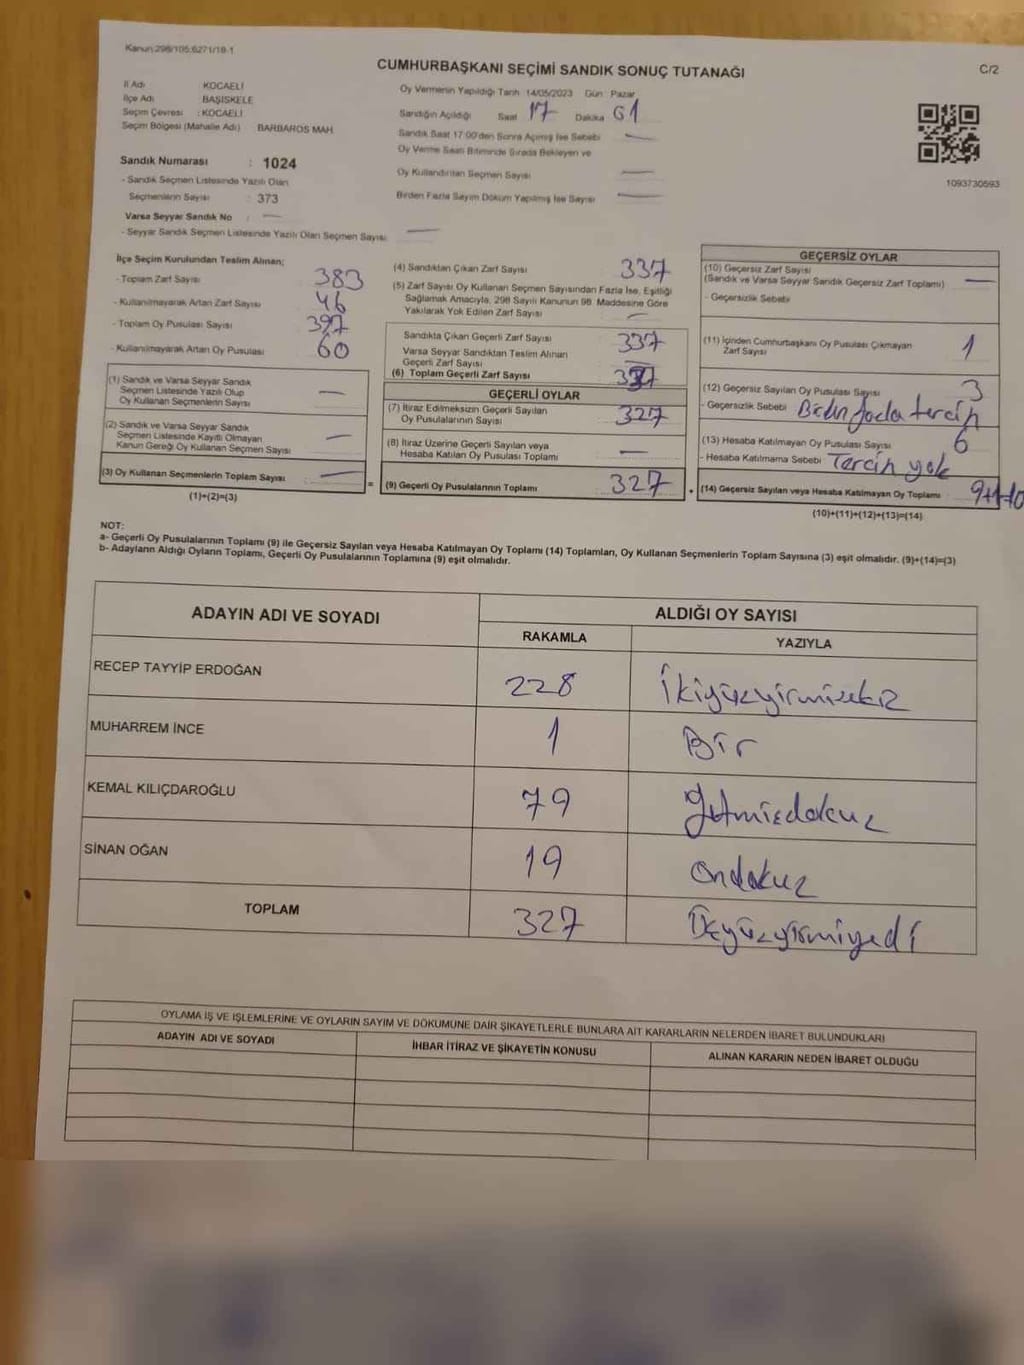 Kanun:298/105;6271/18-1
CUMHURBAŞKANI SEÇİMİ SANDIK SONUÇ TUTANAĞI
C/2
İl Adı : KOCAELİ
İlçe Adı : BAŞİSKELE
Seçim Çevresi : KOCAELİ
Seçim Bölgesi (Mahalle Adı) BARBAROS MAH.
Sandık Numarası : 1024
- Sandık Seçmen Listesinde Yazılı Olan
Seçmenlerin Sayısı : 373
Varsa Seyyar Sandık No : —
- Seyyar Sandık Seçmen Listesinde Yazılı Olan Seçmen Sayısı —
Oy Vermenin Yapıldığı Tarih 14/05/2023 Gün : Pazar
Sandığın Açıldığı Saat 17 Dakika 01
Sandık Saat 17:00'den Sonra Açılmış İse Sebebi —
Oy Verme Saati Bitiminde Sırada Bekleyen ve
Oy Kullandırılan Seçmen Sayısı —
Birden Fazla Sayım Döküm Yapılmış İse Sayısı —
1093730593
İlçe Seçim Kurulundan Teslim Alınan;
- Toplam Zarf Sayısı 383
- Kullanılmayarak Artan Zarf Sayısı 46
- Toplam Oy Pusulası Sayısı 397
- Kullanılmayarak Artan Oy Pusulası 60
(1) Sandık ve Varsa Seyyar Sandık
Seçmen Listesinde Yazılı Olup
Oy Kullanan Seçmenlerin Sayısı —
(2) Sandık ve Varsa Seyyar Sandık
Seçmen Listesinde Kayıtlı Olmayan
Kanun Gereği Oy Kullanan Seçmen Sayısı —
(3) Oy Kullanan Seçmenlerin Toplam Sayısı —
(1)+(2)=(3)
=
(4) Sandıktan Çıkan Zarf Sayısı 337
(5) Zarf Sayısı Oy Kullanan Seçmen Sayısından Fazla İse, Eşitliği
Sağlamak Amacıyla, 298 Sayılı Kanunun 98. Maddesine Göre
Yakılarak Yok Edilen Zarf Sayısı —
Sandıkta Çıkan Geçerli Zarf Sayısı 337
Varsa Seyyar Sandıktan Teslim Alınan
Geçerli Zarf Sayısı —
(6) Toplam Geçerli Zarf Sayısı 337
GEÇERLİ OYLAR
(7) İtiraz Edilmeksizin Geçerli Sayılan
Oy Pusulalarının Sayısı 327
(8) İtiraz Üzerine Geçerli Sayılan veya
Hesaba Katılan Oy Pusulası Toplamı —
(9) Geçerli Oy Pusulalarının Toplamı 327
+
GEÇERSİZ OYLAR
(10) Geçersiz Zarf Sayısı
(Sandık ve Varsa Seyyar Sandık Geçersiz Zarf Toplamı) —
- Geçersizlik Sebebi
(11) İçinden Cumhurbaşkanı Oy Pusulası Çıkmayan
Zarf Sayısı 1
(12) Geçersiz Sayılan Oy Pusulası Sayısı 3
- Geçersizlik Sebebi Birden fazla tercih
(13) Hesaba Katılmayan Oy Pusulası Sayısı 6
- Hesaba Katılmama Sebebi Tercih yok
(14) Geçersiz Sayılan veya Hesaba Katılmayan Oy Toplamı 9+1=10
(10)+(11)+(12)+(13)=(14)
NOT:
a- Geçerli Oy Pusulalarının Toplamı (9) ile Geçersiz Sayılan veya Hesaba Katılmayan Oy Toplamı (14) Toplamları, Oy Kullanan Seçmenlerin Toplam Sayısına (3) eşit olmalıdır. (9)+(14)=(3)
b- Adayların Aldığı Oyların Toplamı, Geçerli Oy Pusulalarının Toplamına (9) eşit olmalıdır.
ADAYIN ADI VE SOYADI ALDIĞI OY SAYISI
RAKAMLA YAZIYLA
RECEP TAYYİP ERDOĞAN 228 İkiyüzyirmisekiz
MUHARREM İNCE 1 Bir
KEMAL KILIÇDAROĞLU 79 Yetmişdokuz
SİNAN OĞAN 19 Ondokuz
TOPLAM 327 Üçyüzyirmiyedi
OYLAMA İŞ VE İŞLEMLERİNE VE OYLARIN SAYIM VE DÖKÜMÜNE DAİR ŞİKAYETLERLE BUNLARA AİT KARARLARIN NELERDEN İBARET BULUNDUKLARI
ADAYIN ADI VE SOYADI İHBAR İTİRAZ VE ŞİKAYETİN KONUSU ALINAN KARARIN NEDEN İBARET OLDUĞU